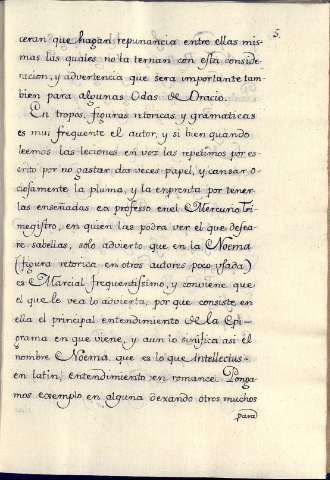 5.
ceran que hagan repunancia entre ellas mis-
mas las quales no la ternan con esta conside-
racion, y advertencia que sera importante tam-
bien para algunas Odas de Oracio.
En tropos, figuras retoricas, y gramaticas
es mui frequente el autor, y si bien quando
leemos las leciones en voz las repetimos por es-
crito por no gastar dos veces papel, y cansar o-
ciosamente la pluma, y la enprenta por tener
las enseñadas ex professo en el Mercurio Tri-
megistro, en quien las podra ver el que desea-
re sabellas, solo advierto que en la Noëma
(figura retorica en otros autores poco usada)
es Marcial frequentissimo, y conviene que
el que le vea lo advierta, por que consiste en
ella el principal entendimiento de la Epi-
grama en que viene, y aun lo sinifica asi el
nombre Noëma, que es lo que intellectus
en latin, entendimiento en romance. Ponga-
mos exemplo en alguna dexando otros muchos
para